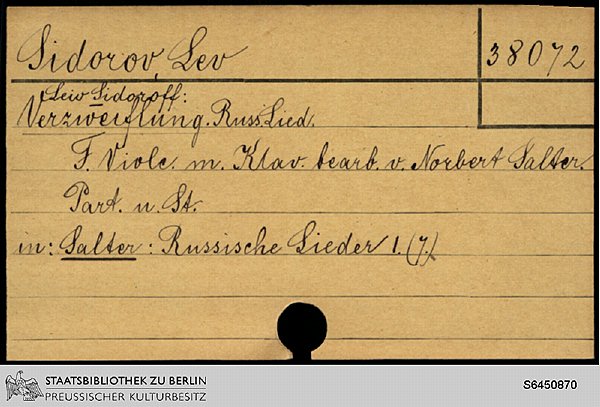 Sidorov, Lev
38072
Leiv Sidoroff:
Verzweiflung. Russ. Lied.
F. Violc. m. Klav. bearb. v. Norbert Salter.
Part. u. St.
in: Salter: Russische Lieder 1. (7.)
STAATSBIBLIOTHEK ZU BERLIN
PREUSSISCHER KULTURBESITZ
S6450870